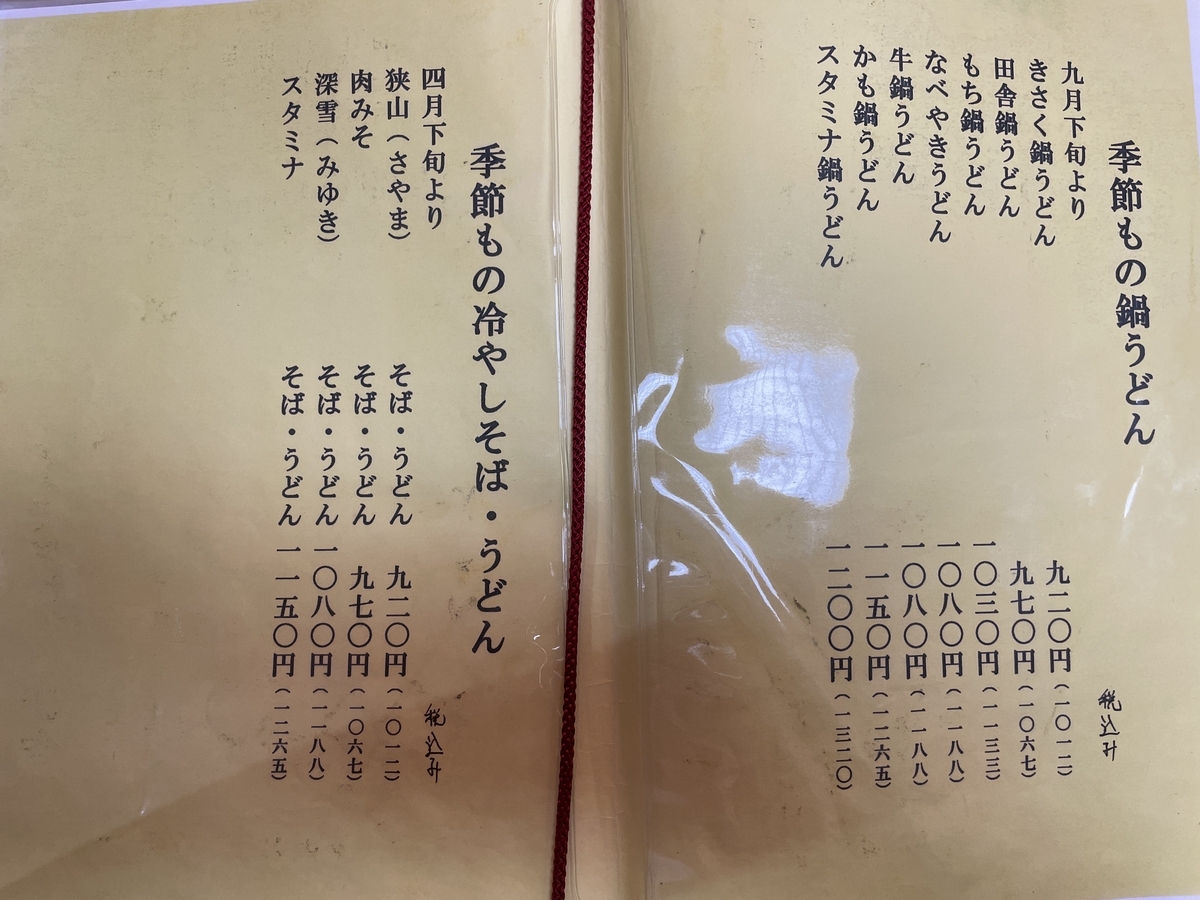 季節もの鍋うどん
九月下旬より 税込み
きさく鍋うどん 九二〇円(一〇一二)
田舎鍋うどん 九七〇円(一〇六七)
もち鍋うどん 一〇三〇円(一一三三)
なべやきうどん 一〇八〇円(一一八八)
牛鍋うどん 一〇八〇円(一一八八)
かも鍋うどん 一一五〇円(一二六五)
スタミナ鍋うどん 一二〇〇円(一三二〇)
季節もの冷やしそば・うどん
四月下旬より 税込み
狭山(さやま) そば・うどん 九二〇円(一〇一二)
肉みそ そば・うどん 九七〇円(一〇六七)
深雪(みゆき) そば・うどん 一〇八〇円(一一八八)
スタミナ そば・うどん 一一五〇円(一二六五)